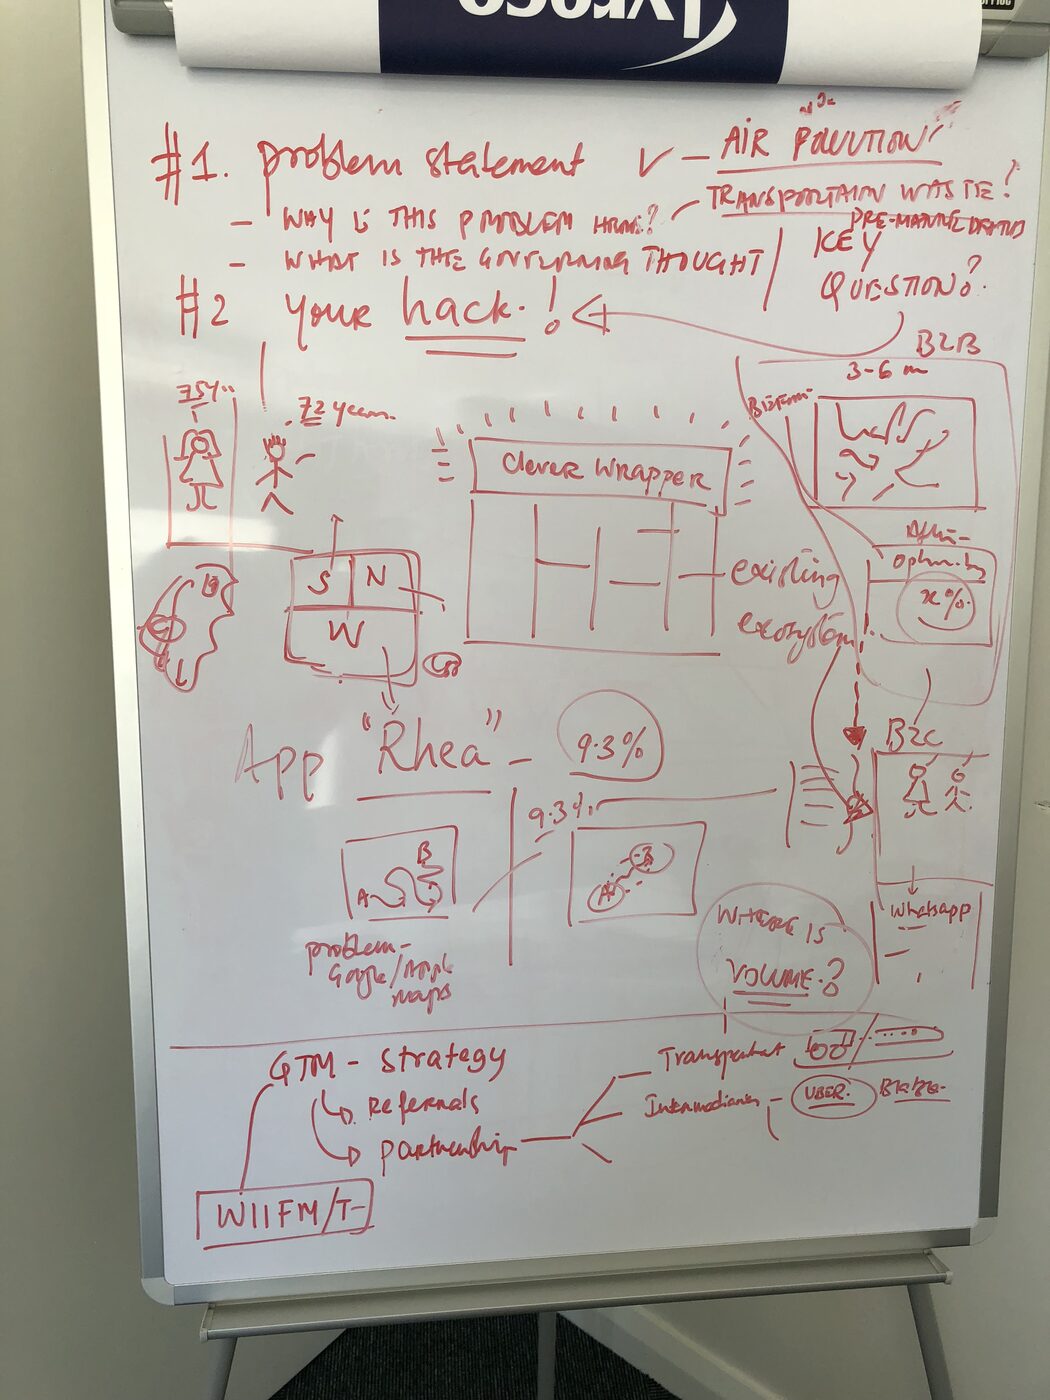 Lyreco
#1. problem statement ✓ – AIR POLLUTION?
– WHY IS THIS PROBLEM – TRANSPORTATION WASTE?
– WHAT IS THE GOVERNING THOUGHT / KEY QUESTION?
#2 your hack!
B2B
3-6 m
72 years.
Clever Wrapper
S N
W
existing
ecosystem
x%
App "Rhea" – 9.3%
B2C
9.3%
A B
A B
problem –
Google/Apple
maps
WHERE IS
VOLUME?
Whatsapp
GTM – strategy
Referrals
partnership
Transport
Intermediaries – UBER.
WIIFM/T–